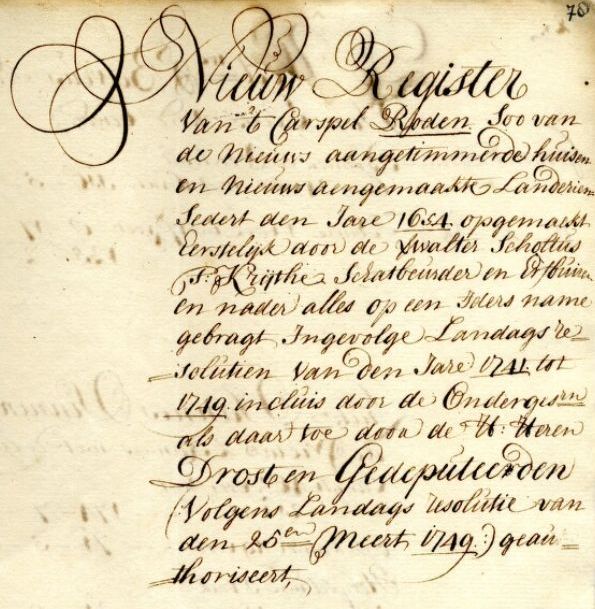 78
Nieuw Register
Van 't Carspel Roden Soo van
de Nieuws aangetimmerde huisen
en Nieuws aengemaakte Landerien
Sedert den Jare 1654 opgemaekt
Eerstelijk door de Scholtus
Krijthe Schatbeurder en
en nader alles op een Jders name
gebragt Ingevolge Landags re
=solutien Van den Jare 1741 tot
1749 incluis door de Onderges:
als daar toe door de H: Heren
Drost en Gedeputeerden
(Volgens Landags resolutie van
den 25en Meert 1749:) geau=
thoriseert,